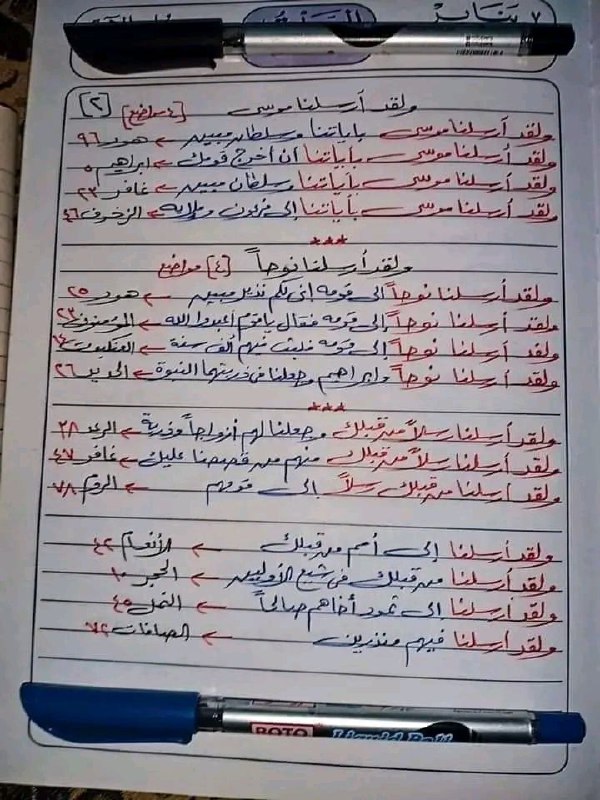 ٧ يناير
[٢] ولقد أرسلنا موسى [٤ مواضع]
ولقد أرسلنا موسى بآياتنا وسلطان مبين ← هود ٩٦
ولقد أرسلنا موسى بآياتنا أن أخرج قومك ← ابراهيم ٥
ولقد أرسلنا موسى بآياتنا وسلطان مبين ← غافر ٢٣
ولقد أرسلنا موسى بآياتنا إلى فرعون وملإيه ← الزخرف ٤٦
***
ولقد أرسلنا نوحاً [٤] مواضع
ولقد أرسلنا نوحاً إلى قومه إنى لكم نذير مبين ← هود ٢٥
ولقد أرسلنا نوحاً إلى قومه فقال ياقوم اعبدوا الله ← المؤمنون ٢٣
ولقد أرسلنا نوحاً إلى قومه فلبث فيهم ألف سنة ← العنكبوت ١٤
ولقد أرسلنا نوحاً وابراهيم وجعلنا فى ذريتهما النبوة ← الحديد ٢٦
***
ولقد أرسلنا رسلاً من قبلك وجعلنا لهم أزواجاً وذرية ← الرعد ٣٨
ولقد أرسلنا رسلاً من قبلك منهم من قصصنا عليك ← غافر ٤٧
ولقد أرسلنا من قبلك رسلاً إلى قومهم ← الروم ٧٨
ولقد أرسلنا إلى أمم من قبلك ← الأنعام ٤٢
ولقد أرسلنا من قبلك فى شيع الأولين ← الحجر ١٠
ولقد أرسلنا إلى ثمود أخاهم صالحاً ← النمل ٤٥
ولقد أرسلنا فيهم منذرين ← الصافات ٧٢
ROTO